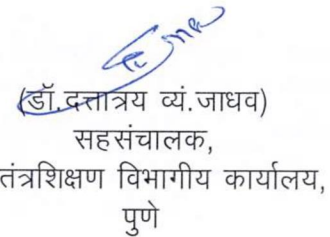 (डॉ.दत्तात्रय व्यं.जाधव)
सहसंचालक,
तंत्रशिक्षण विभागीय कार्यालय,
पुणे